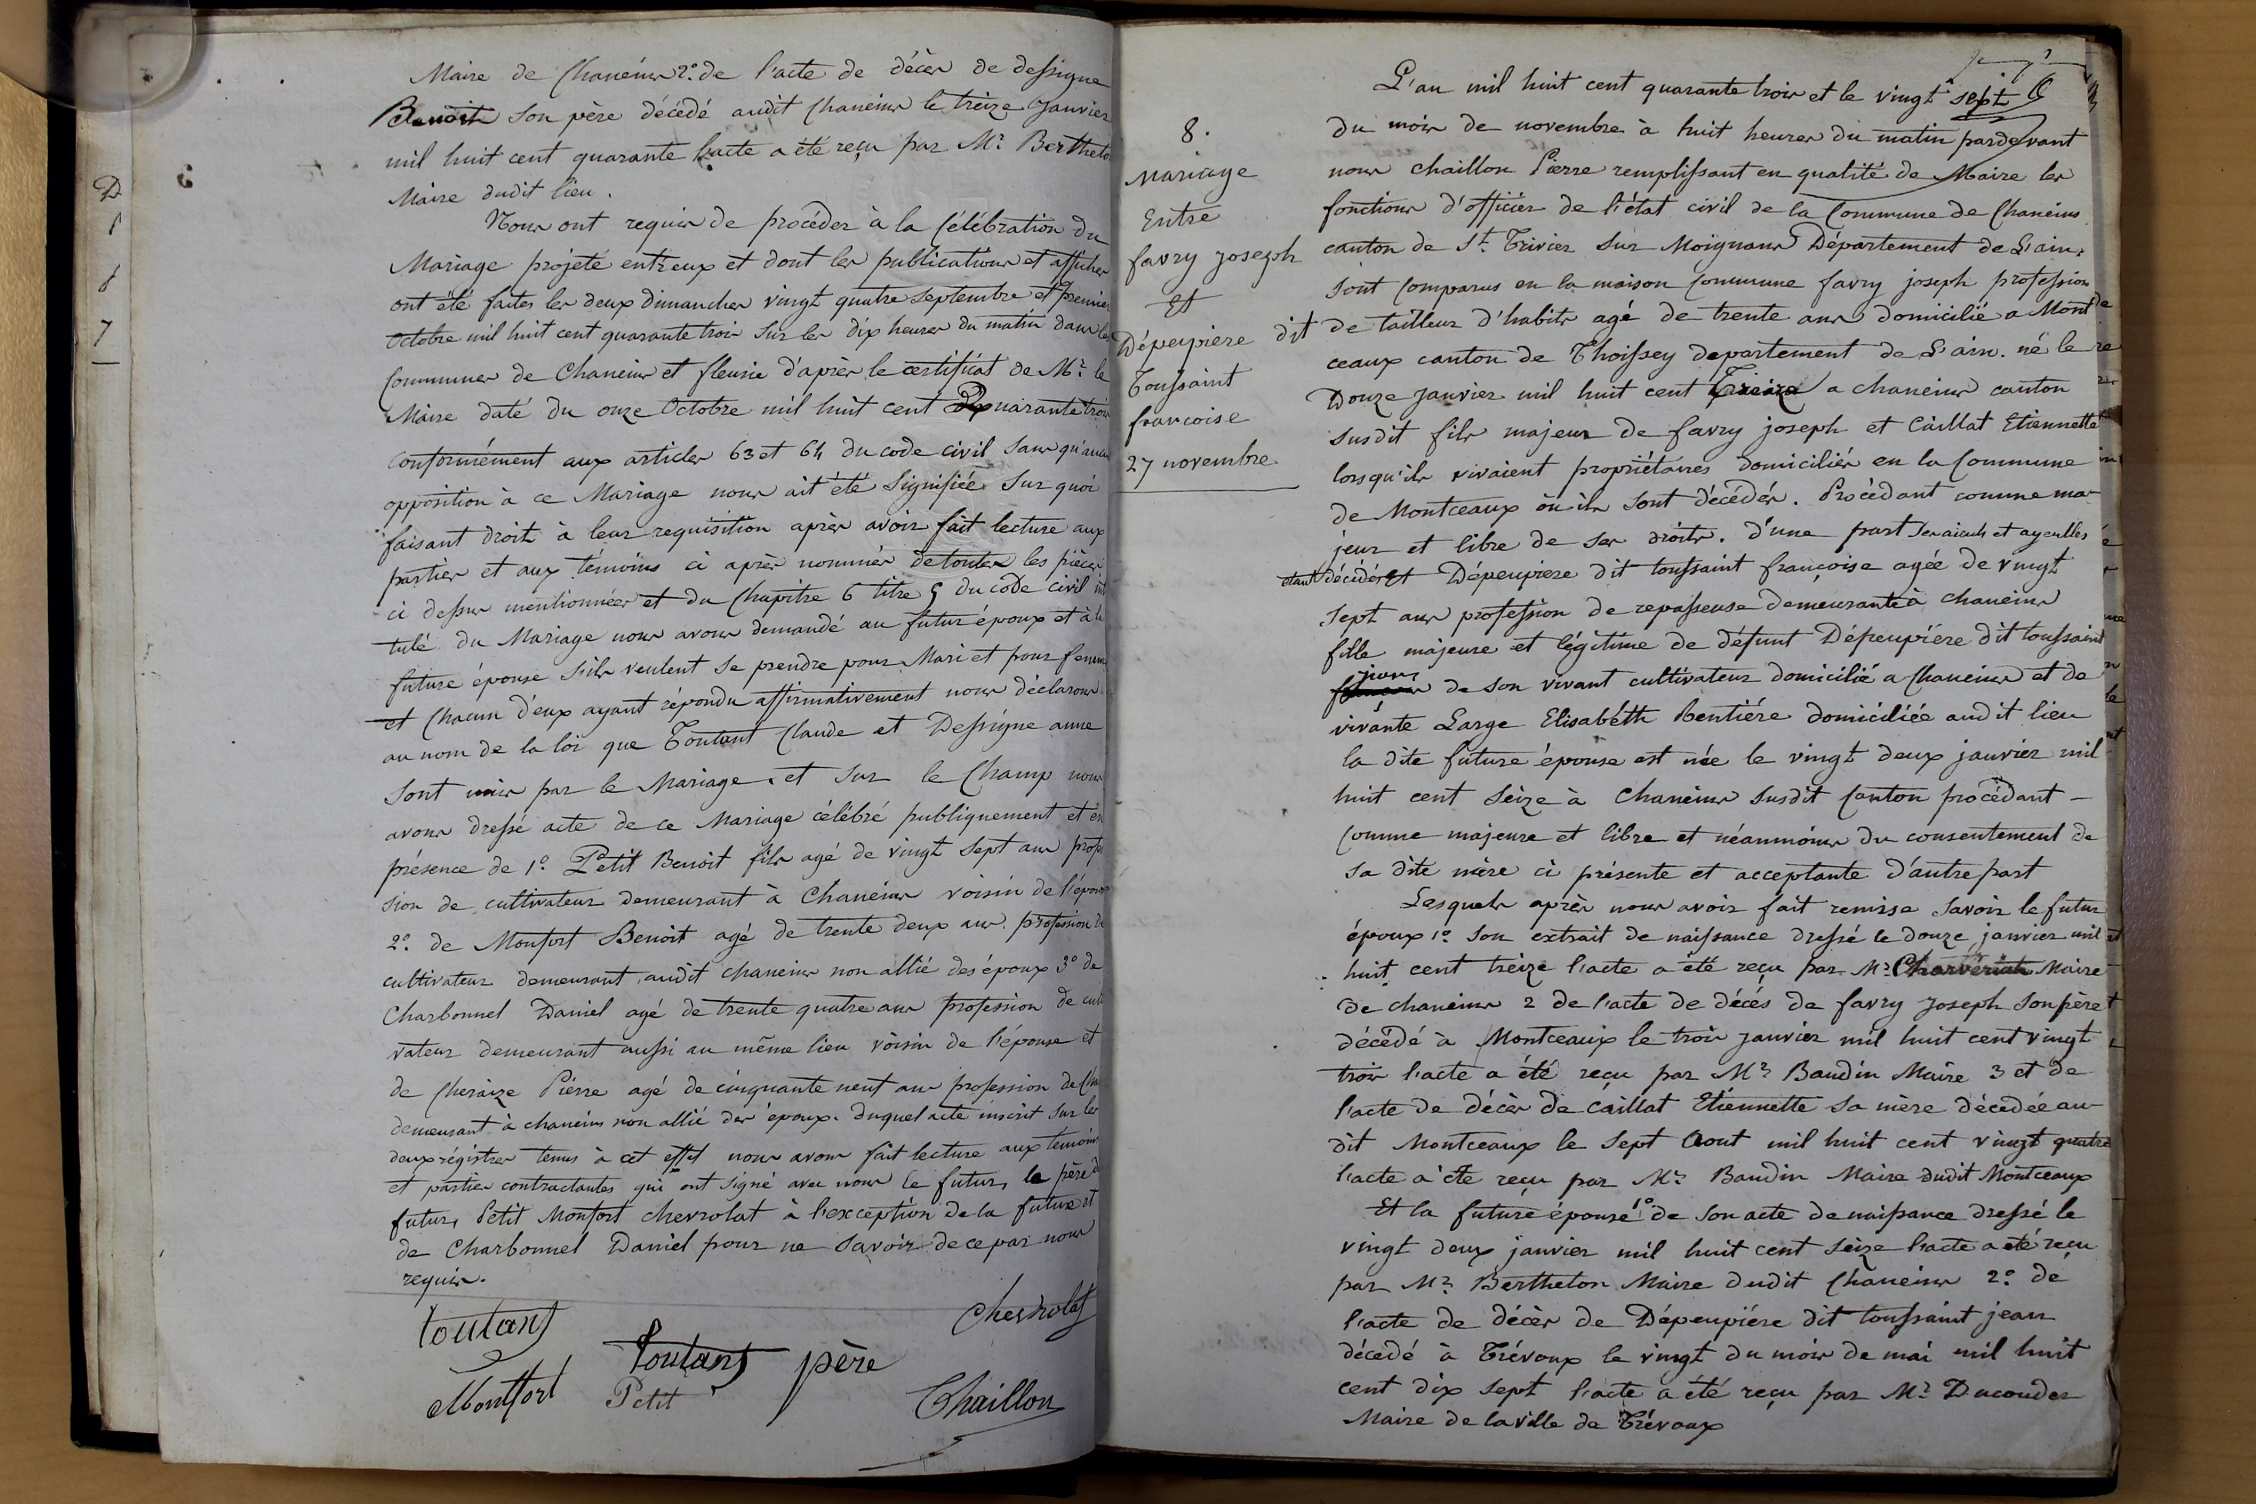 Maire de Chaneins 2.° de l'acte de décès de dessigne
Benoit son père décédé audit Chaneins le treize Janvier
mil huit cent quarante l'acte a été reçu par Mr. Berthelo
Maire dudit lieu.
Nous ont requis de procéder à la Célébration du
Mariage projeté entreux et dont les publications et affiches
ont été faites les deux dimanches vingt quatre septembre et premier
octobre mil huit cent quarante trois sur les dix heures du matin dans les
Communes de Chaneins et fleurie d'après le certificat de Mr. le
Maire daté du onze Octobre mil huit cent quarante trois
Conformément aux articles 63 et 64 du code civil sans qu'aucu
opposition à ce Mariage nous ait été signifiée sur quoi
faisant droit à leur requisition après avoir fait lecture aux
parties et aux témoins ci après nommés de toutes les pièces
ci dessus mentionnées et du Chapitre 6 titre 5 du code civil int
tulé du Mariage nous avons demandé au futur époux et à la
future épouse s'ils veulent se prendre pour Mari et pour femme
et Chacun d'eux ayant répondu affirmativement nous déclarons
au nom de la loi que Toutant Claude et Dessigne anne
sont unis par le Mariage. et sur le Champ nous
avons dressé acte de ce Mariage célébré publiquement et en
présence de 1.° Petit Benoit fils agé de vingt sept ans profes
sion de cultivateur demeurant à Chaneins voisin de l'épouse
2.° de Monfort Benoit agé de trente deux ans. profession de
cultivateur demeurant audit chaneins non allié des époux 3° de
Charbonnel Daniel agé de trente quatre ans profession de culti
vateur demeurant aussi au même lieu voisin de l'épouse et
de Pierre agé de cinquante neuf ans profession de
demeurant à chaneins non allié des époux. duquel acte inscrit sur les
deux régistres tenus à cet effet nous avons fait lecture aux témoins
et parties contractantes qui ont signé avec nous le futur, le père d
futur, Petit Monfort chevrolat à l'exception de la future et
de Charbonnel Daniel pour ne savoir de ce par nous
requis.
Chevrolat
toutant
toutant père
Montfort Petit
Chaillon
D
1
6
7
8.
Mariage
Entre
favry joseph
Et
Dépeupière dit
Toussaint
francoise
27 novembre
L'an mil huit cent quarante trois et le vingt sept
du mois de novembre à huit heures du matin pardevant
nous chaillon Pierre remplissant en qualité de Maire les
fonctions d'officier de l'état civil de la Commune de Chaneins
canton de St. Trivier sur Moignans Département de L'ain,
sont Comparus en la maison Commune favry joseph profession
de tailleur d'habits agé de trente ans domicilié a Mont
ceaux canton de Thoissey departement de L'ain. né le
Douze janvier mil huit cent treize a chaneins canton
susdit fils majeur de favry joseph et Caillat Etiennette
lorsqu'ils vivaient propriétaires domiciliés en la Commune
de Montceaux où ils sont décédés. Procédant comme ma-
jeur et libre de ses droits. d'une part ses aieuls et ayeulles
étant décédés Et Dépeupiere dit toussaint françoise agée de vingt
sept ans profession de repasseuse demeurante à chaneins
fille majeure et légitime de défunt Dépeupiére dit toussaint
jean de son vivant cultivateur domicilié a Chaneins et de
vivante Large Elisabéth Rentiére domiciliée audit lieu
la dite future épouse est née le vingt deux janvier mil
huit cent seize à Chaneins susdit Canton procédant -
Comme majeure et libre et néanmoins du consentement de
sa dite mère ci présente et acceptante d'autre part
Lesquels après nous avoir fait remise savoir le futur
époux 1° son extrait de naissance dressé le douze janvier mil
huit cent treize l'acte a été reçu par Mr. Charveriat Maire
de chaneins 2 de l'acte de décés de favry joseph son père
décédé à Montceaux le trois janvier mil huit cent vingt
trois l'acte a été reçu par Mr. Baudin Maire 3 et de
l'acte de décès de Caillat Etiennette sa mère décedée au-
dit Montceaux le sept Aout mil huit cent vingt quatre
l'acte a été reçu par Mr. Baudin Maire dudit Montceaux
Et la future épouse 1° de son acte de naissance dressé le
vingt deux janvier mil huit cent seize l'acte a été reçu
par Mr. Berthelon Maire dudit Chaneins 2.° de
l'acte de décès de Dépeupiére dit toussaint jean
décedé à Trévoux le vingt du mois de mai mil huit
cent dix sept l'acte a été reçu par Mr. Ducouder
Maire de la ville de Trévoux